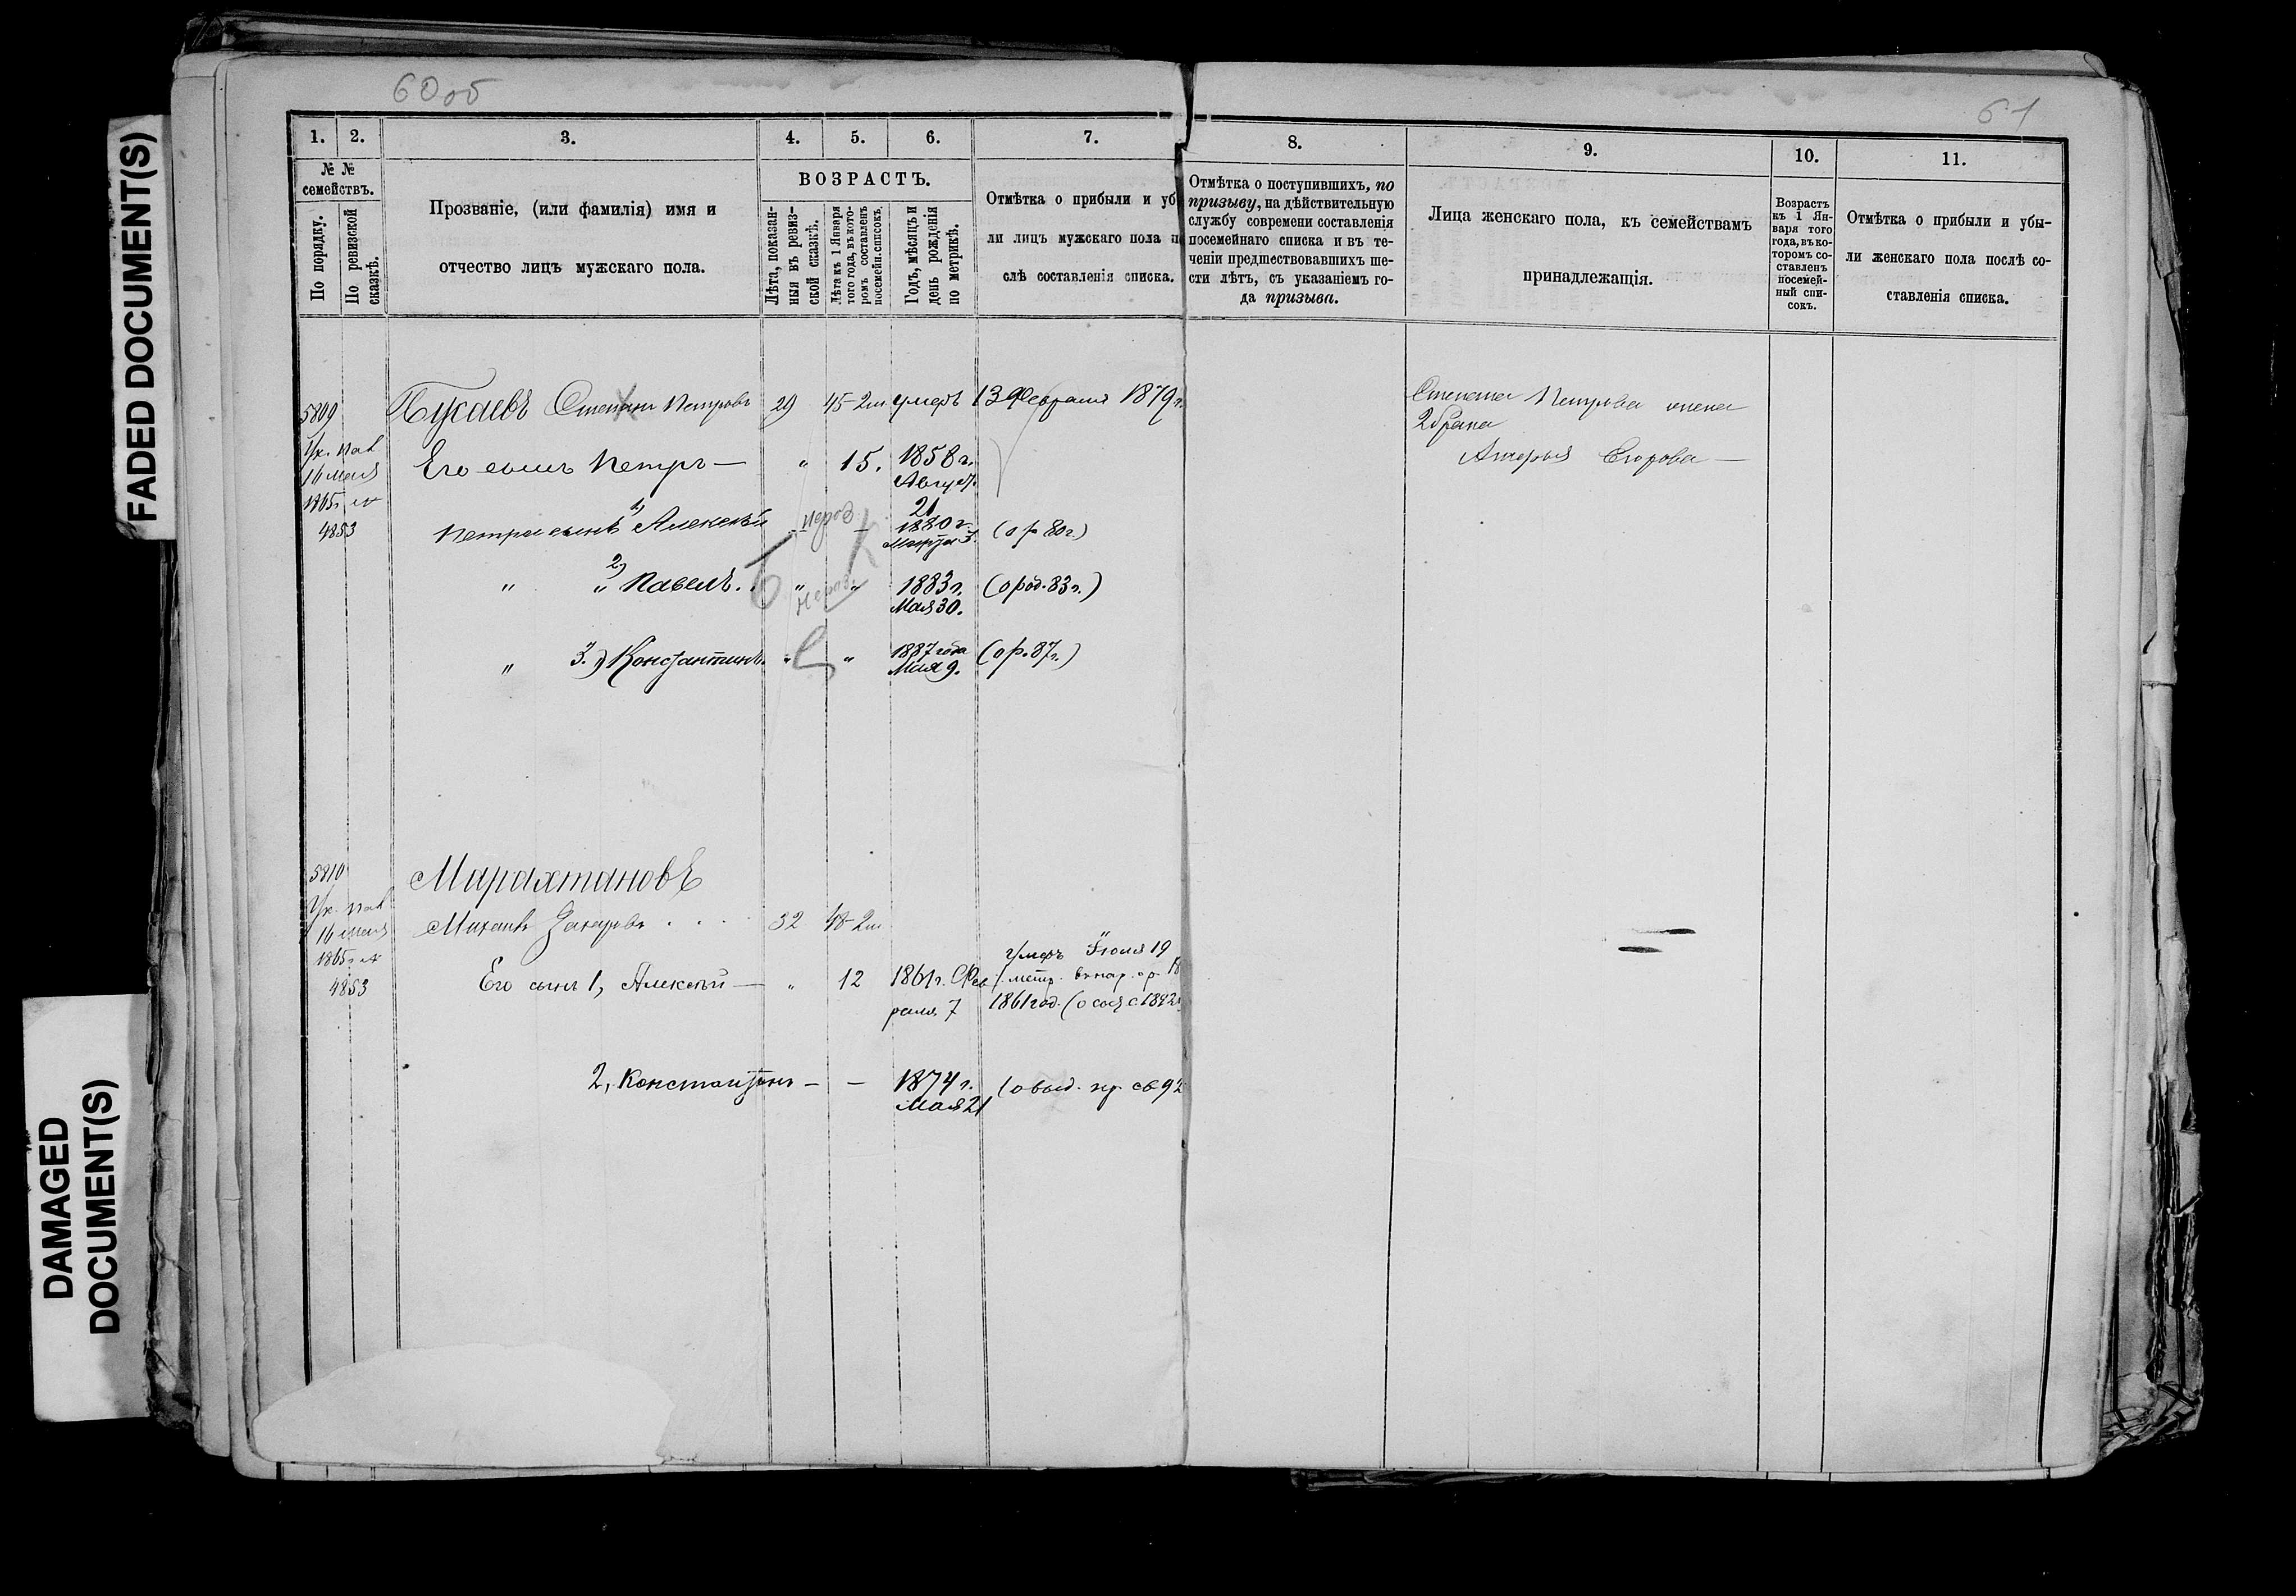 60об
61
FADED DOCUMENT(S)
DAMAGED
DOCUMENT(S)
1. 2. 3. 4. 5. 6. 7. 8. 9. 10. 11.
№ №
семействъ.
По порядку.
По ревизской
сказкѣ.
Прозваніе, (или фамилія) имя и
отчество лицъ мужскаго пола.
ВОЗРАСТЪ.
Лѣта, показан-
ныя въ ревиз-
ской сказкѣ.
Лѣта къ 1 Января
того года, въ кото-
ромъ составленъ
посемейн. списокъ.
Годъ, мѣсяцъ и
день рожденія
по метрикѣ.
Отмѣтка о прибыли и уб
ли лицъ мужскаго пола п
слѣ составленія списка.
Отмѣтка о поступившихъ, по
призыву, на дѣйствительную
службу современи составленія
посемейнаго списка и въ те-
ченіи предшествовавшихъ ше-
сти лѣтъ, съ указаніемъ го-
да призыва.
Лица женскаго пола, къ семействамъ
принадлежащія.
Возрастъ
къ 1 Ян-
варя того
года, въ ко-
торомъ со-
ставленъ
посемей-
ный спи-
сокъ.
Отмѣтка о прибыли и убы-
ли женскаго пола послѣ со-
ставленія списка.
5809 Степанъ Петровъ 29 45-2м умеръ 13 Февраля 1879г.
16 мая
1865г.
4853
Его сынъ Петръ — " 15. 1858г.
Август.
21
Петра сынъ 1) Алексѣй 1880г. (о р 80г.)
Марта 3.
" 2) " Павелъ. " " 1883г. (о род. 83г.)
Мая 30.
" 3.) Константинъ. " " 1887 года (о р. 87г.)
Мая 9.
Степана Петрова жена
2 брака
Егорова —
5810 Марахтановъ
16 мая
1865г.
4853
Михаилъ Захаровъ . . . 32 48-2м
Его сынъ 1, Алексѣй — " 12 1861г. Фев
раля 7
умеръ Іюля 19
1861 год.
2, Константинъ — — 1874г.
Мая 21